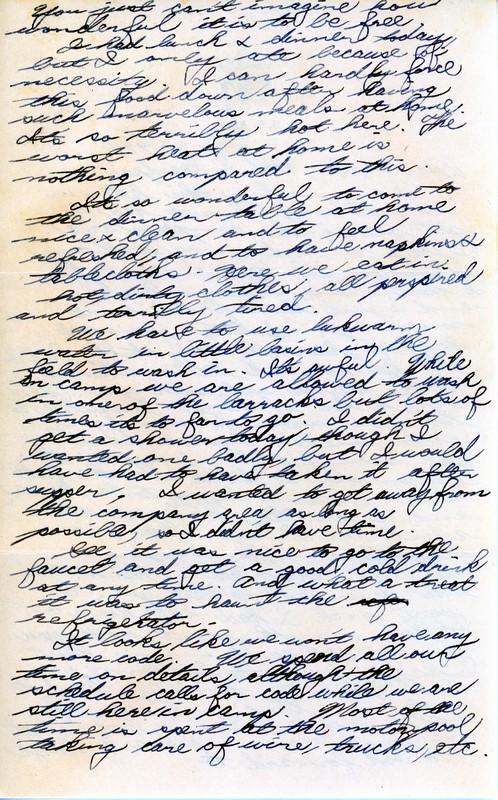 You just can't imagine how
wonderful it is to be free.
I had lunch & dinner today
but I only ate because of
necessity. I can hardly force
this food down after having
such marvelous meals at home.
It's so terribly hot here. The
worst heat at home is
nothing compared to this.
It's so wonderful to come to
the dinner table at home
nice & clean and to feel
refreshed, and to have napkins &
tablecloths. Here we eat in
hot, dirty clothes, all perspired
and terribly tired.
We have to use lukewarm
water in little basins in the
field to wash in. It's awful. While
in camp we are allowed to wash
in one of the barracks but lots of
times its to far to go. I didn't
get a shower today though I
wanted one badly, but I would
have had to have taken it after
supper, I wanted to get away from
the company area as long as
possible, so I didn't have time.
Gee it was nice to go to the
faucet and get a good, cold drink
at any time. And what a treat
it was to haunt the
refrigerator.
It looks like we won't have any
more code. We spend all our
time on details, although the
schedule calls for code while we are
still here in camp. Most of the
time is spent at the motor pool
taking care of wire, trucks, etc.